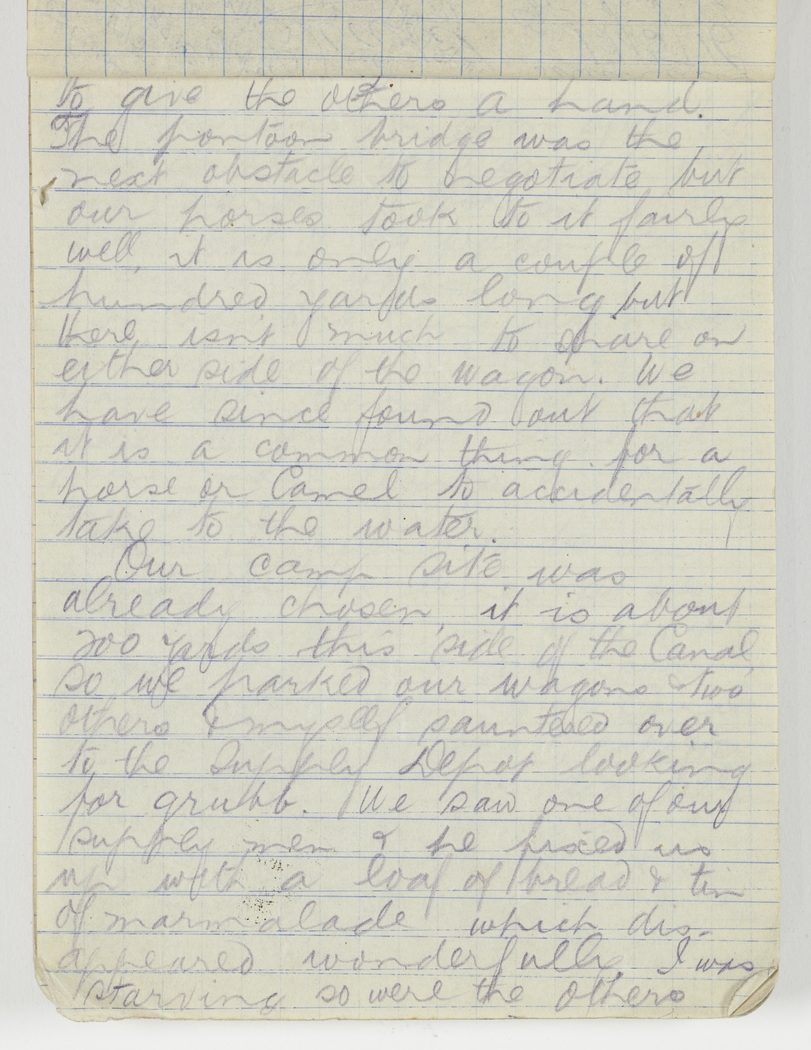 to give the others a hand.
The pontoon bridge was the
next obstacle to negotiate but
our horses took to it fairly
well, it is only a couple of
hundred yards long but
there isn't much to spare on
either side of the wagon. We
have since found out that
it is a common thing for a
horse or Camel to accidentally
take to the water.
Our camp site was
already chosen, it is about
200 yards this side of the Canal
so we parked our wagons & two
others & myself sauntered over
to the Supply Depot looking
for grubb. We saw one of our
supply men & he fixed us
up with a loaf of bread & tin
of marmalade which dis-
appeared wonderfully, I was
starving so were the others